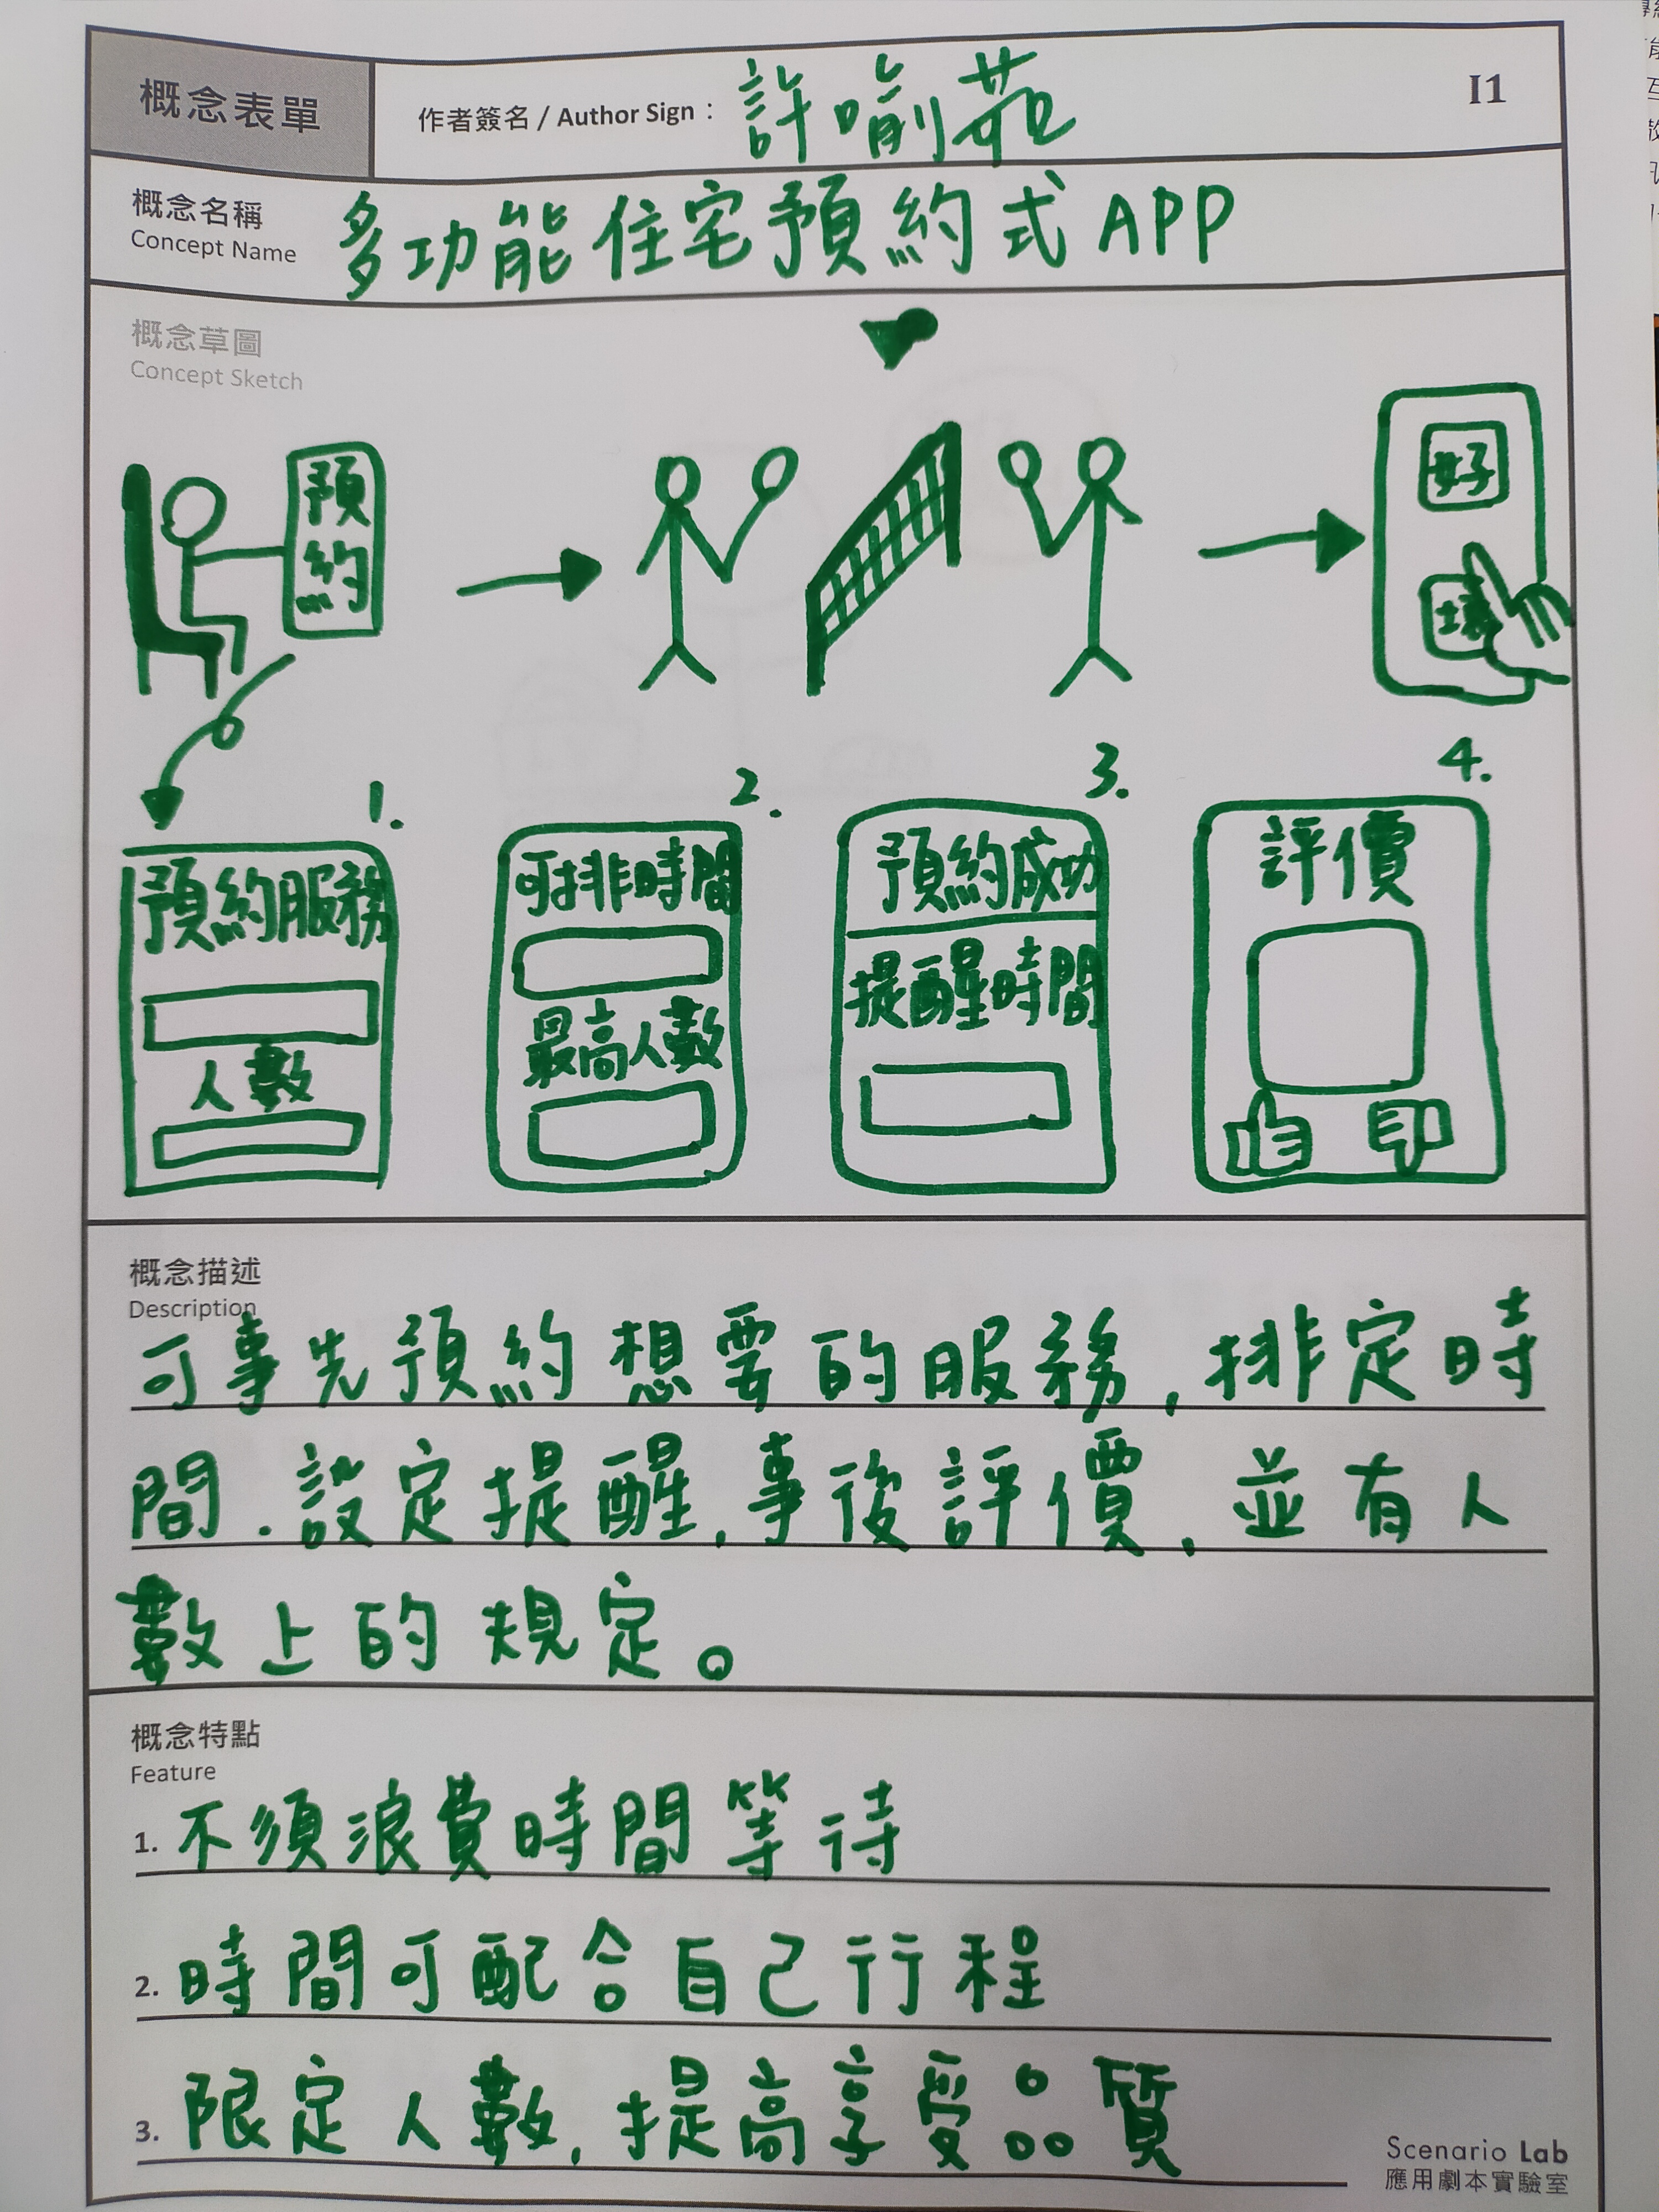 概念表單
作者簽名 / Author Sign：許喻苑
I1
概念名稱
Concept Name
多功能住宅預約式APP
概念草圖
Concept Sketch
預
約
好
壞
1.
預約服務
人數
2.
可排時間
最高人數
3.
預約成功
提醒時間
4.
評價
概念描述
Description
可事先預約想要的服務,排定時
間.設定提醒,事後評價,並有人
數上的規定。
概念特點
Feature
1. 不須浪費時間等待
2. 時間可配合自己行程
3. 限定人數,提高享受品質
Scenario Lab
應用劇本實驗室